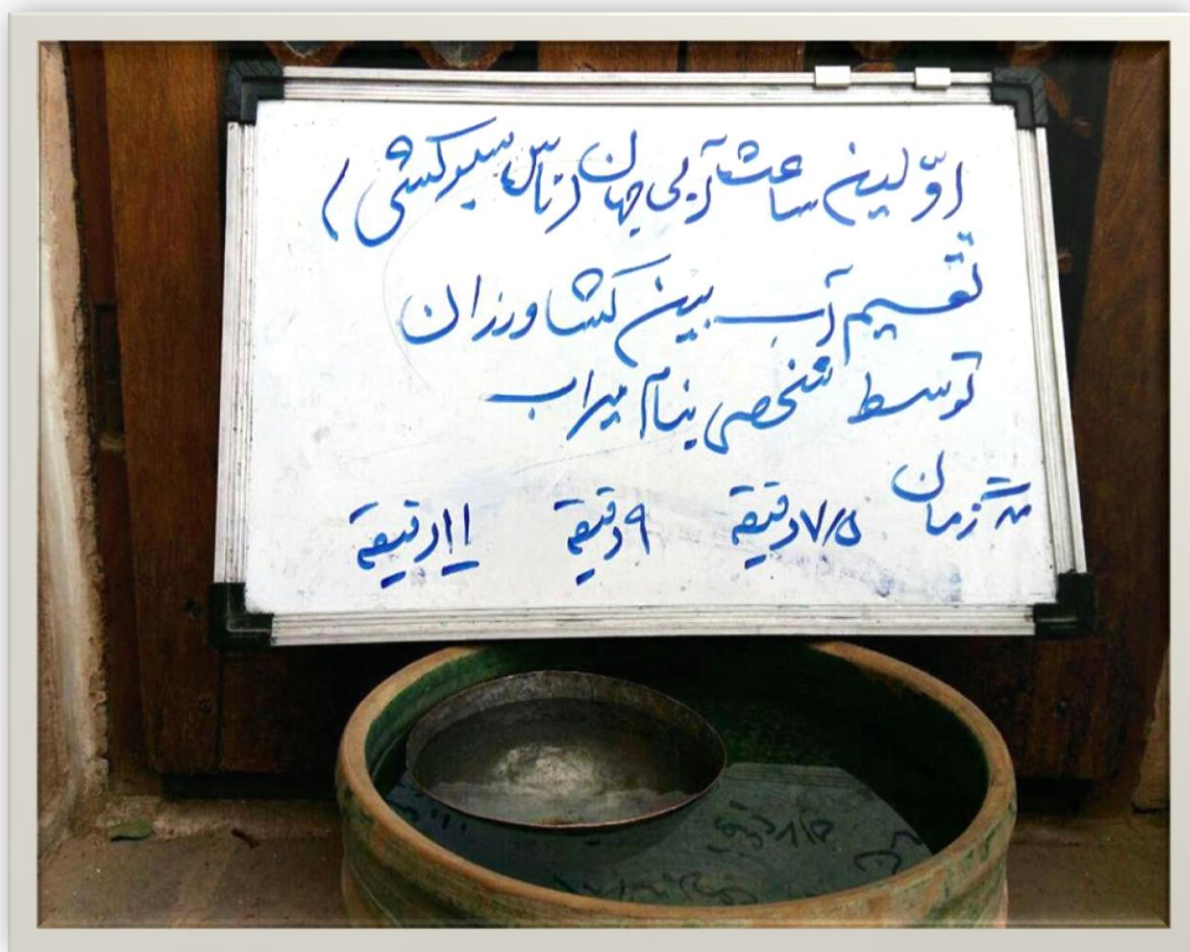 اوّلین ساعت آبی جهان (تاس سبوکشی)
تقسیم آب بین کشاورزان
توسط شخصی بنام میراب
زمان ۷/۵ دقیقه ۹ دقیقه ۱۱ دقیقه